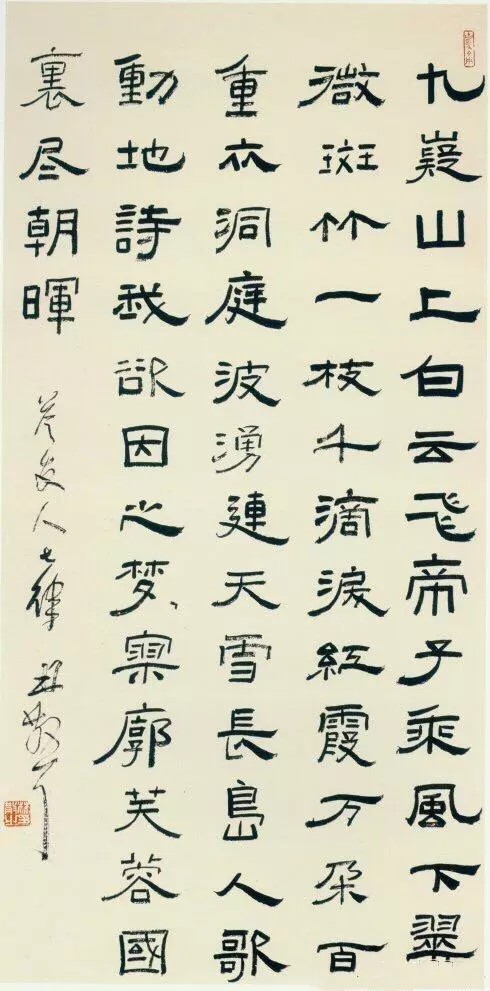 九嶷山上白云飞帝子乘風下翠
微斑竹一枝千滴淚紅霞万朵百
重衣洞庭波湧連天雪長島人歌
動地詩我欲因之梦寥廓芙蓉國
裏尽朝暉
答友人七律